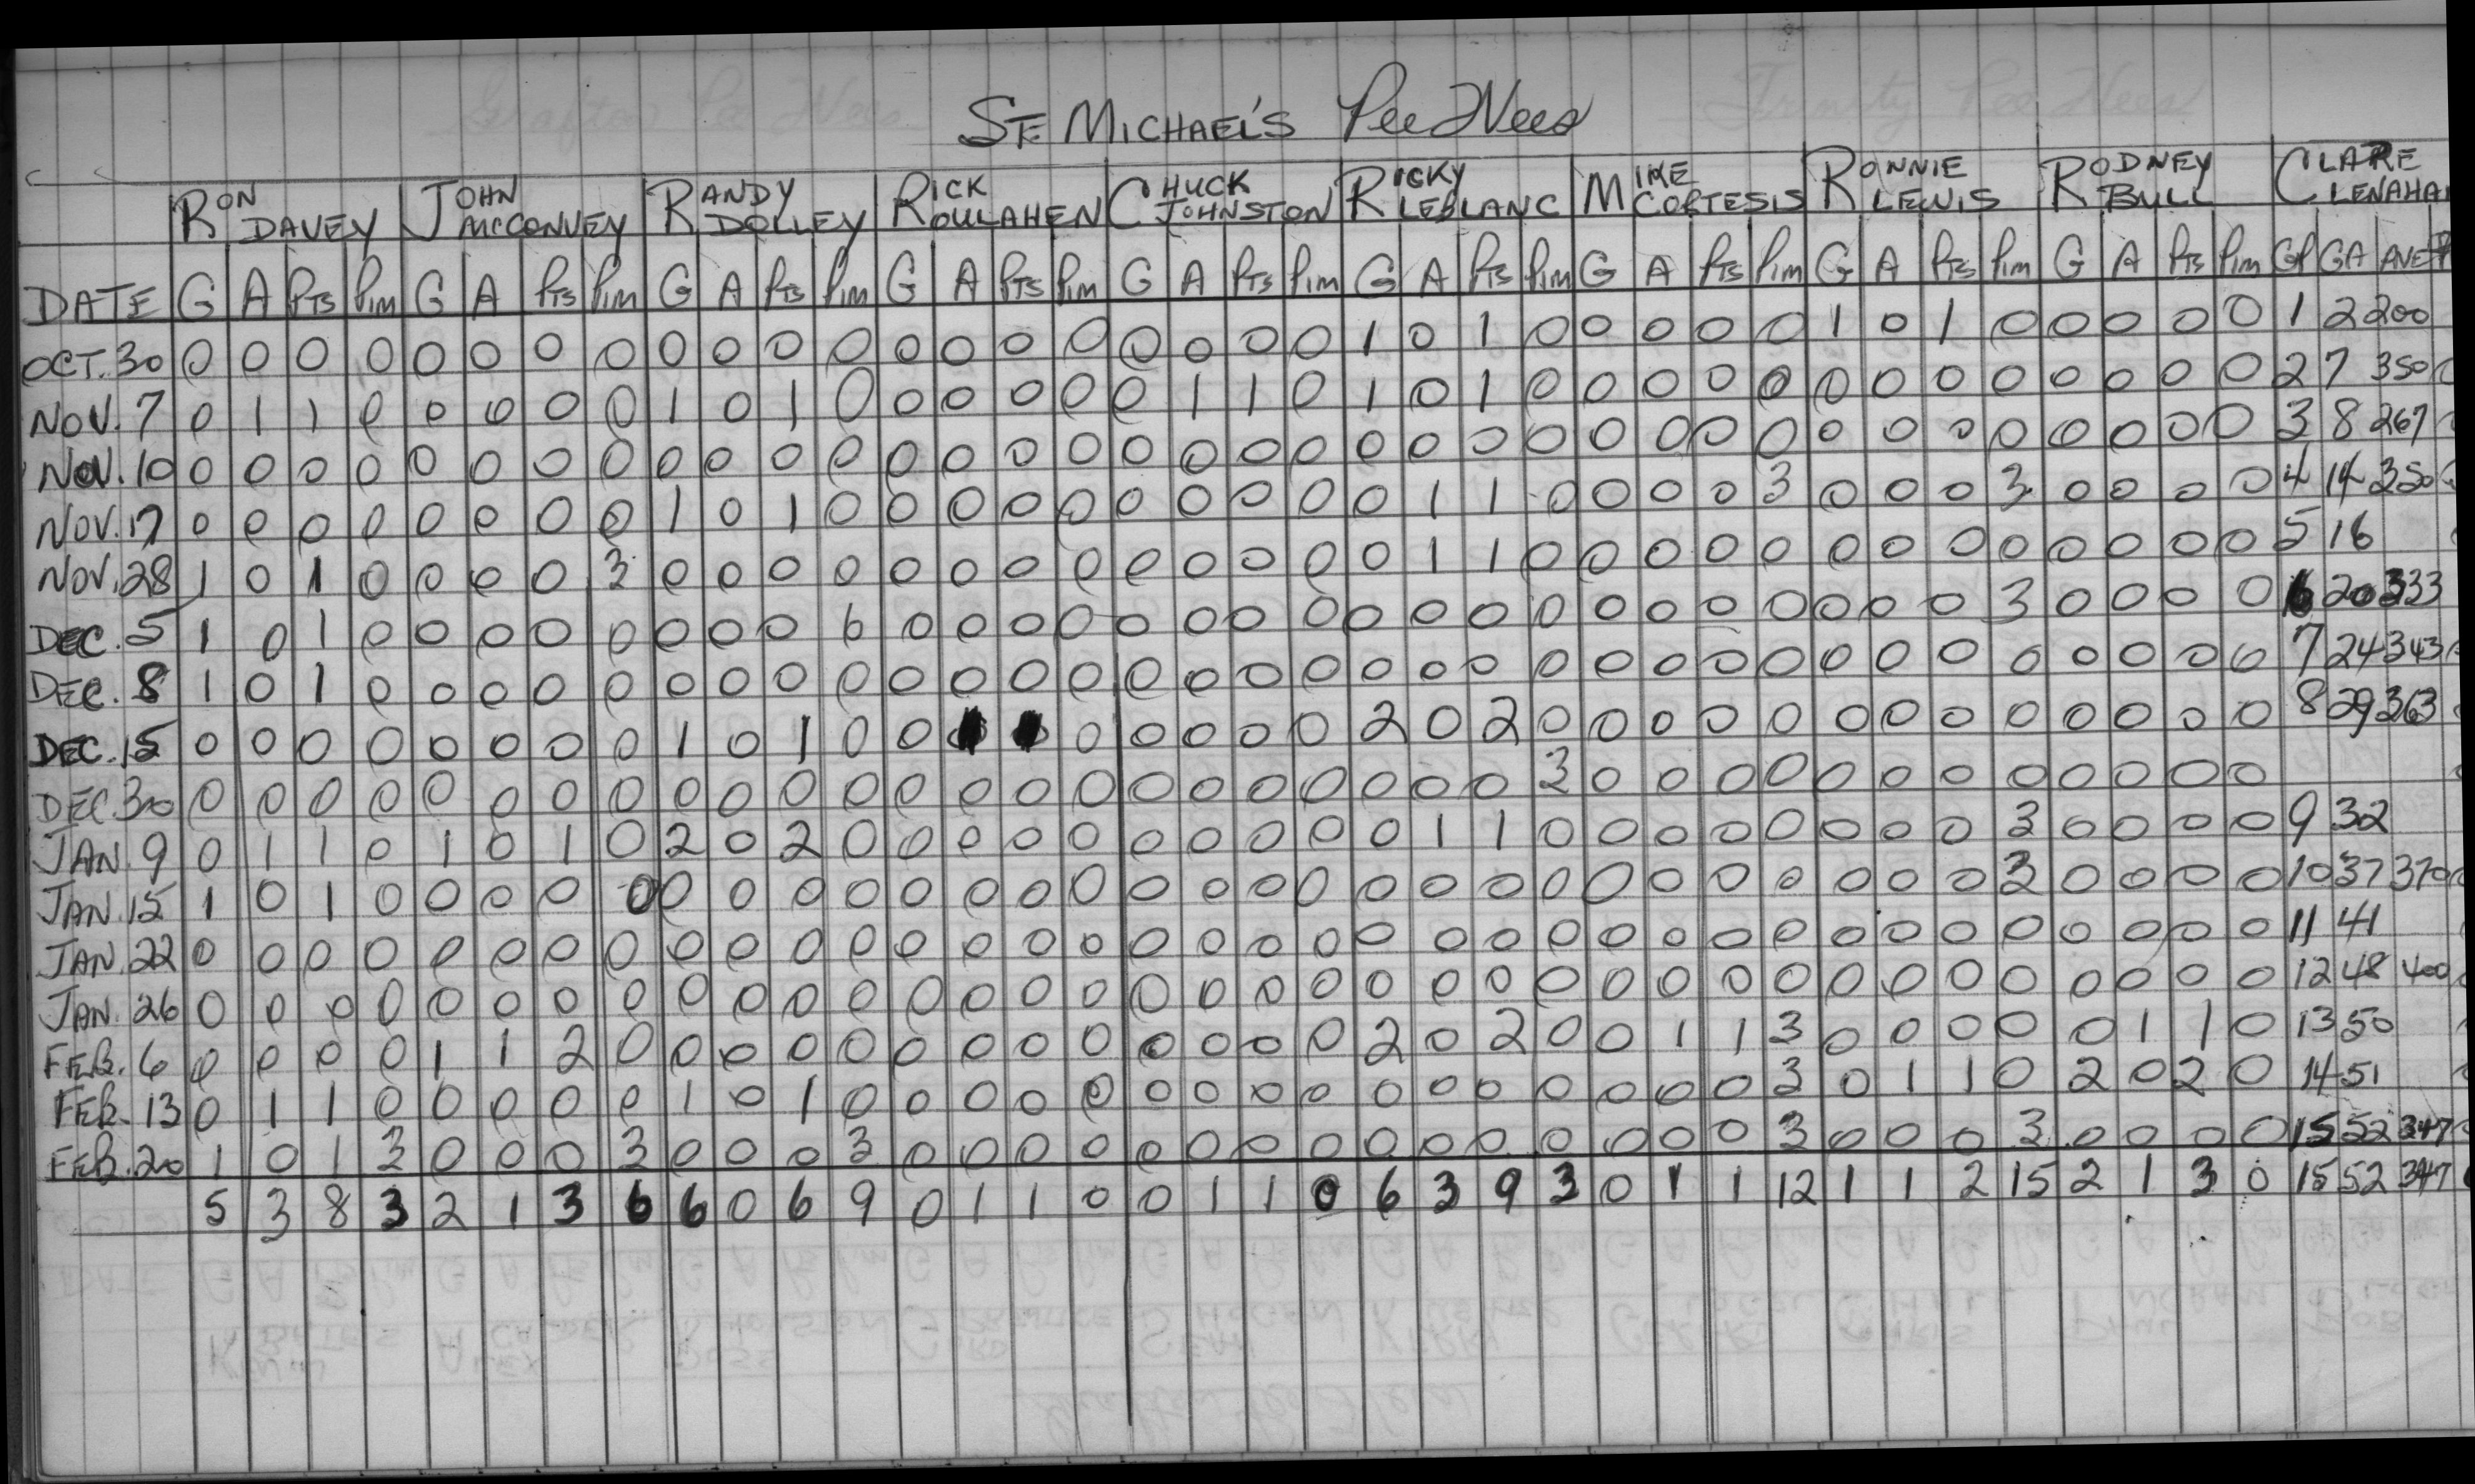 ST. MICHAEL'S Pee Wees
RON DAVEY JOHN MCCONVEY RANDY DOLLEY RICK ROULAHEN CHUCK JOHNSTON RICKY LEBLANC MIKE CORTESIS RONNIE LEWIS RODNEY BULL CLARE LENAHAN
DATE G A PTS PIM G A PTS PIM G A PTS PIM G A PTS PIM G A PTS PIM G A PTS PIM G A PTS PIM G A PTS PIM G A PTS PIM GP GA AVE
OCT. 30 0 0 0 0 0 0 0 0 0 0 0 0 0 0 0 0 0 0 0 0 1 0 1 0 0 0 0 0 1 0 1 0 0 0 0 0 1 2 200
NOV. 7 0 1 1 0 0 0 0 0 1 0 1 0 0 0 0 0 0 1 1 0 1 0 1 0 0 0 0 0 0 0 0 0 0 0 0 0 2 7 350
NOV. 10 0 0 0 0 0 0 0 0 0 0 0 0 0 0 0 0 0 0 0 0 0 0 0 0 0 0 0 0 0 0 0 0 0 0 0 0 3 8 267
NOV. 17 0 0 0 0 0 0 0 0 1 0 1 0 0 0 0 0 0 0 0 0 0 1 1 0 0 0 0 3 0 0 0 3 0 0 0 0 4 14 350
NOV. 28 1 0 1 0 0 0 0 3 0 0 0 0 0 0 0 0 0 0 0 0 0 1 1 0 0 0 0 0 0 0 0 0 0 0 0 0 5 16
DEC. 5 1 0 1 0 0 0 0 0 0 0 0 6 0 0 0 0 0 0 0 0 0 0 0 0 0 0 0 0 0 0 0 3 0 0 0 0 6 20 333
DEC. 8 1 0 1 0 0 0 0 0 0 0 0 0 0 0 0 0 0 0 0 0 0 0 0 0 0 0 0 0 0 0 0 0 0 0 0 0 7 24 343
DEC. 15 0 0 0 0 0 0 0 0 1 0 1 0 0 0 0 0 0 0 2 0 2 0 0 0 0 0 0 0 0 0 0 0 0 0 8 29 363
DEC. 30 0 0 0 0 0 0 0 0 0 0 0 0 0 0 0 0 0 0 0 0 0 0 0 3 0 0 0 0 0 0 0 0 0 0 0 0
JAN. 9 0 1 1 0 1 0 1 0 2 0 2 0 0 0 0 0 0 0 0 0 0 1 1 0 0 0 0 0 0 0 0 3 0 0 0 0 9 32
JAN. 15 1 0 1 0 0 0 0 0 0 0 0 0 0 0 0 0 0 0 0 0 0 0 0 0 0 0 0 0 0 0 0 3 0 0 0 0 10 37 370
JAN. 22 0 0 0 0 0 0 0 0 0 0 0 0 0 0 0 0 0 0 0 0 0 0 0 0 0 0 0 0 0 0 0 0 0 0 0 0 11 41
JAN. 26 0 0 0 0 0 0 0 0 0 0 0 0 0 0 0 0 0 0 0 0 0 0 0 0 0 0 0 0 0 0 0 0 0 0 0 0 12 48 400
FEB. 6 0 0 0 0 1 1 2 0 0 0 0 0 0 0 0 0 0 0 0 0 2 0 2 0 0 1 1 3 0 0 0 0 0 1 1 0 13 50
FEB. 13 0 1 1 0 0 0 0 0 1 0 1 0 0 0 0 0 0 0 0 0 0 0 0 0 0 0 0 3 0 1 1 0 2 0 2 0 14 51
FEB. 20 1 0 1 3 0 0 0 3 0 0 0 3 0 0 0 0 0 0 0 0 0 0 0 0 0 0 0 3 0 0 0 3 0 0 0 0 15 52 347
5 3 8 3 2 1 3 6 6 0 6 9 0 1 1 0 0 1 1 0 6 3 9 3 0 1 1 12 1 1 2 15 2 1 3 0 15 52 347